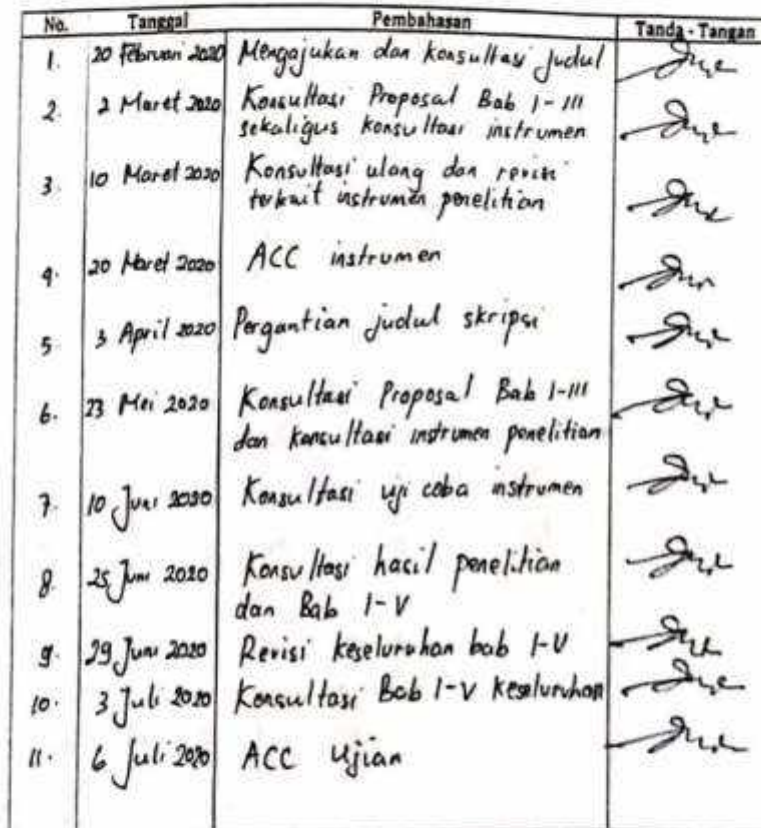 No. Tanggal Pembahasan Tanda - Tangan
1. 20 Februari 2020 Mengajukan dan konsultasi judul
2. 2 Maret 2020 Konsultasi Proposal Bab I - III
sekaligus konsultasi instrumen
3. 10 Maret 2020 Konsultasi ulang dan revisi
terkait instrumen penelitian
4. 20 Maret 2020 ACC instrumen
5. 3 April 2020 Pergantian judul skripsi
6. 23 Mei 2020 Konsultasi Proposal Bab I-III
dan konsultasi instrumen penelitian
7. 10 Juni 2020 Konsultasi uji coba instrumen
8. 25 Juni 2020 Konsultasi hasil penelitian
dan Bab I-V
9. 29 Juni 2020 Revisi keseluruhan bab I-V
10. 3 Juli 2020 Konsultasi Bab I-V keseluruhan
11. 6 Juli 2020 ACC Ujian